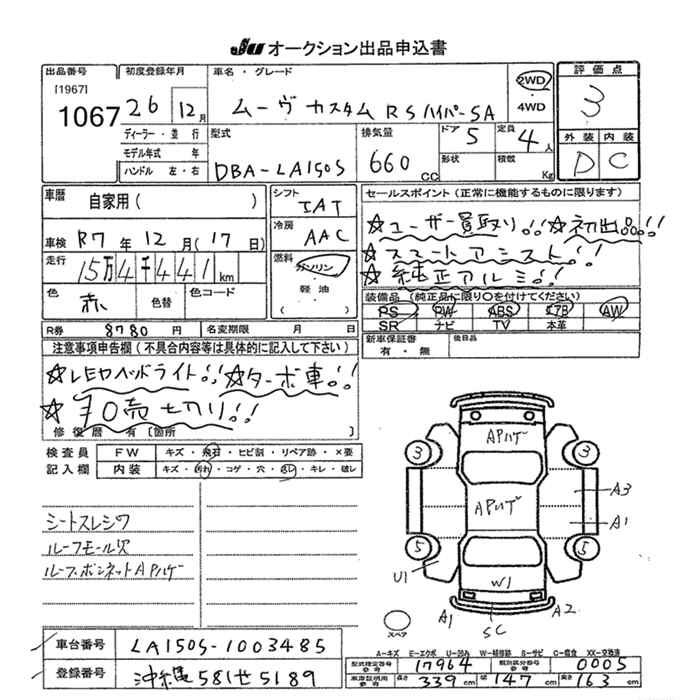 JU オークション出品申込書
出品番号 初度登録年月 車名・グレード 評価点
[1967]
1067 26 12月 ムーヴ カスタム RS ハイパーSA 2WD 4WD 3
ディーラー・並行 型式 排気量 ドア 定員 外装 内装
モデル年式 年 DBA-LA150S 660 CC 5 4人 D C
ハンドル 左・右 形状 積数 Kg
車暦 自家用( ) シフト IAT セールスポイント(正常に機能するものに限ります)
車検 R7年12月(17日) 冷房 AAC ☆ユーザー買取り!! ☆初出品!!
走行 15万4千441km 燃料 ガソリン ☆スマートアシスト!!
軽油 ☆純正アルミ!!
色 赤 色替 色コード ( ) 装備品(純正品に限り○を付けてください)
PS PW ABS エアB AW
SR ナビ TV 本革
R券 8780円 名変期限 月 日 新車保証書 有・無 後日品
注意事項申告欄(不具合内容等は具体的に記入して下さい)
☆LEDヘッドライト!! ☆ターボ車!!
☆ 売切り!!
修復歴 有 [箇所 ]
検査員 FW キズ・飛石・ヒビ割・リペア跡・×要
記入欄 内装 キズ・汚れ・コゲ・穴・スレ・キレ・破レ
シートスレシワ
ルーフモール欠
ルーフ.ボンネットAPハゲ
APハゲ
3 3
APハゲ A3
A1
5 5
U1 W1
A1 SC A2
スペア
車台番号 LA150S-1003485
登録番号 沖縄581せ5189
A-キズ E-エクボ U-凹み W-補修跡 S-サビ C-腐食 XX-交換済
型式指定番号 17964 類別区分番号 0005
車庫証明用 長さ 339cm 幅 147cm 高さ 163cm